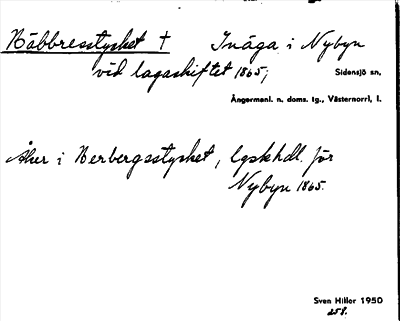 Bäbbresstycket † Inäga i Nybyn
vid lagaskiftet 1865;
Sidensjö sn,
Ångermanl. n. doms. tg., Västernorrl, l.
Åker i Berbergsstycket, lgskhdl. för
Nybyn 1865.
Sven Hiller 1950
258.